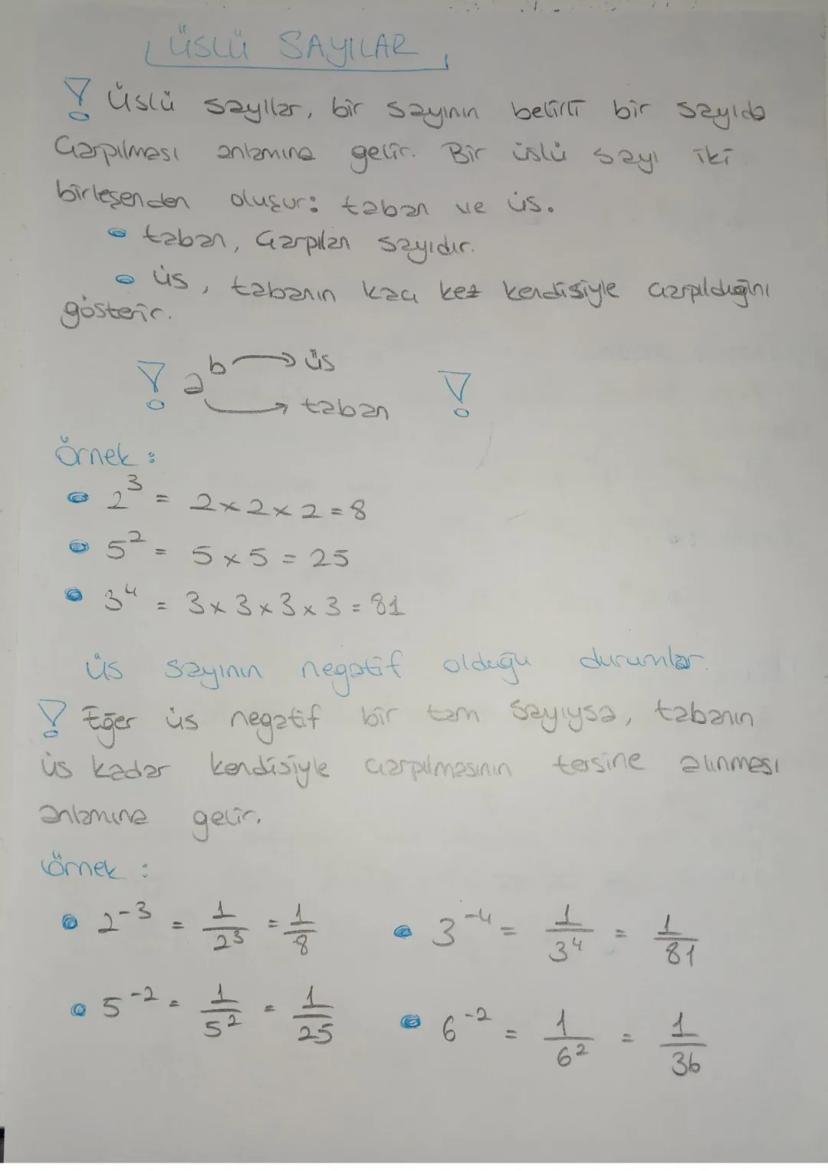 ÜSLÜ SAYILAR
! Üslü sayılar, bir sayının belirli bir sayıda
çarpılması anlamına gelir. Bir üslü sayı iki
birleşenden oluşur: taban ve üs.
• taban, çarpılan sayıdır.
• üs, tabanın kaç kez kendisiyle çarpıldığını
gösterir.
! a^b → üs !
→ taban
Örnek:
• 2^3 = 2 x 2 x 2 = 8
• 5^2 = 5 x 5 = 25
• 3^4 = 3 x 3 x 3 x 3 = 81
üs sayının negatif olduğu durumlar.
! Eğer üs negatif bir tam sayıysa, tabanın
üs kadar kendisiyle çarpılmasının tersine alınması
anlamına gelir.
Örnek:
• 2^-3 = 1/2^3 = 1/8 • 3^-4 = 1/3^4 = 1/81
• 5^-2 = 1/5^2 = 1/25 • 6^-2 = 1/6^2 = 1/36